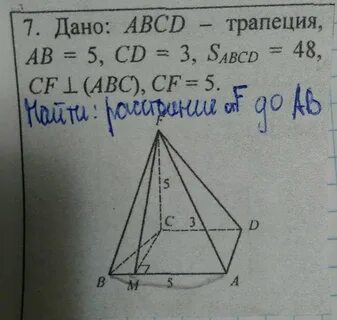 7. Дано: ABCD – трапеция,
AB = 5, CD = 3, S_ABCD = 48,
CF ⊥ (ABC), CF = 5.
Найти: расстояние от F до AB
F
5
C 3 D
B M 5 A